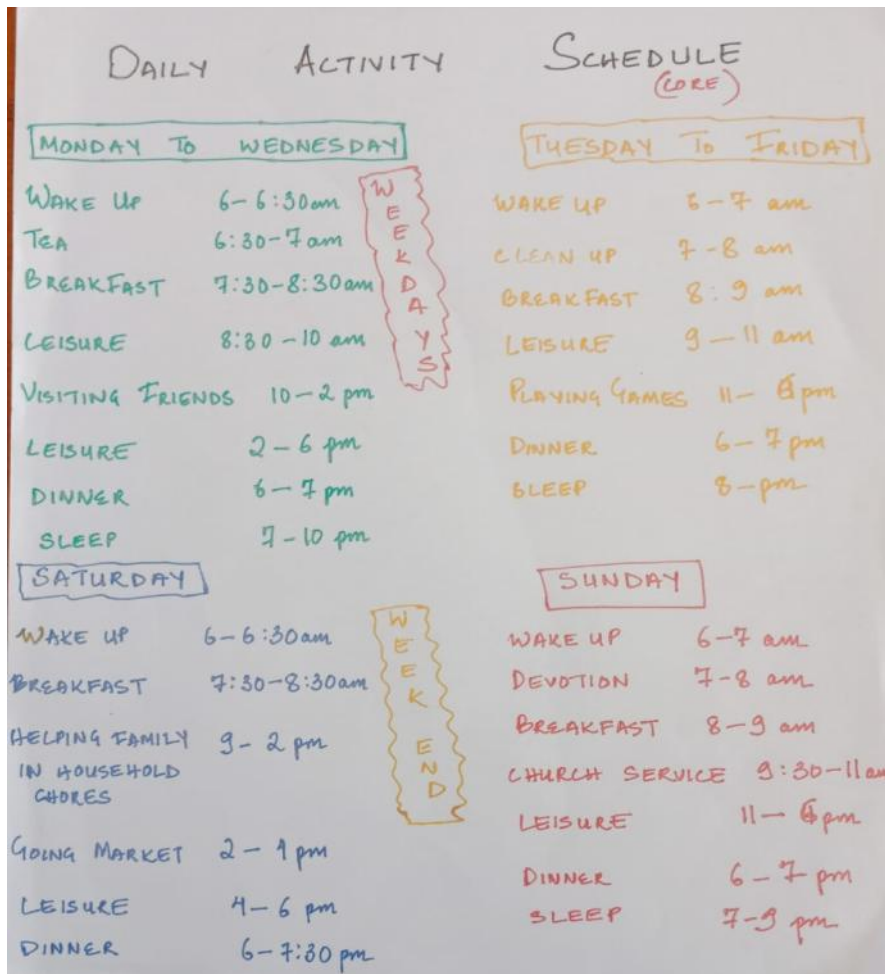 DAILY ACTIVITY SCHEDULE
(CORE)
MONDAY TO WEDNESDAY
WAKE UP 6-6:30am
TEA 6:30-7am
BREAKFAST 7:30-8:30am
LEISURE 8:30-10 am
VISITING FRIENDS 10-2 pm
LEISURE 2-6 pm
DINNER 6-7 pm
SLEEP 7-10 pm
WEEKDAYS
TUESDAY TO FRIDAY
WAKE UP 6-7 am
CLEAN UP 7-8 am
BREAKFAST 8:9 am
LEISURE 9-11 am
PLAYING GAMES 11- 6pm
DINNER 6-7 pm
SLEEP 8-pm
SATURDAY
WAKE UP 6-6:30am
BREAKFAST 7:30-8:30am
HELPING FAMILY 9-2 pm
IN HOUSEHOLD
CHORES
GOING MARKET 2-4 pm
LEISURE 4-6 pm
DINNER 6-7:30 pm
WEEK END
SUNDAY
WAKE UP 6-7 am
DEVOTION 7-8 am
BREAKFAST 8-9 am
CHURCH SERVICE 9:30-11am
LEISURE 11- 6pm
DINNER 6-7 pm
SLEEP 7-9 pm